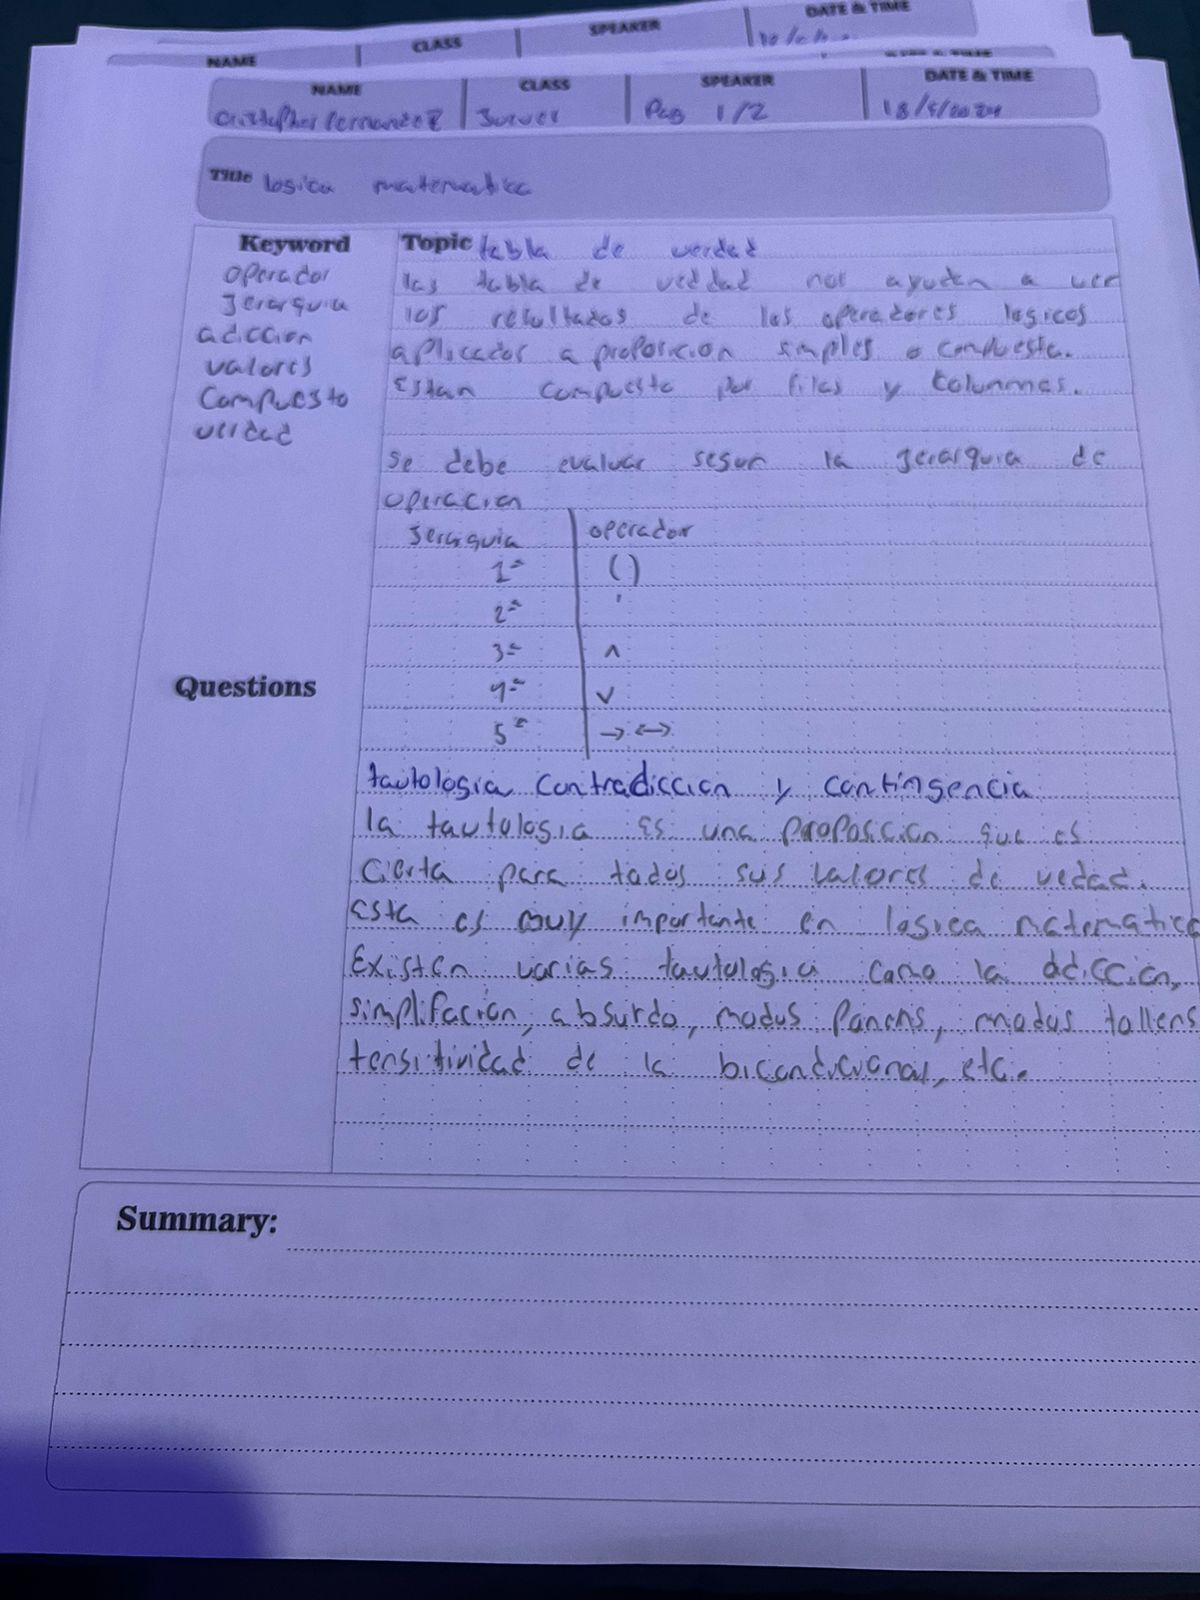 DATE & TIME
SPEAKER
CLASS
NAME
NAME
CLASS
SPEAKER
DATE & TIME
Pag 1/2
Title logica matematica
Keyword
operador
Jerarquia
adiccion
valores
Compuesto
verdad
Topic tabla de verdad
las tabla de verdad nos ayuden a ver
los resultados de los operadores logicos
aplicador a proposicion simples o compuesta.
Estan compuesta por filas y Columnas.
se debe evaluar segun la jerarquia de
operacion
Jerarquia operador
1ª ( )
2ª '
3ª ∧
4ª ∨
5ª → ↔
Questions
tautologia Contradiccion y contingencia
la tautologia es una proposicion que es
Cierta para todos sus valores de vedad.
Esta es muy importante en logica matematica
Existen varias tautologia como la adiccion,
simplifacion, absurdo, modus Ponens, modus tollens
de la bicondicional, etc.
Summary: